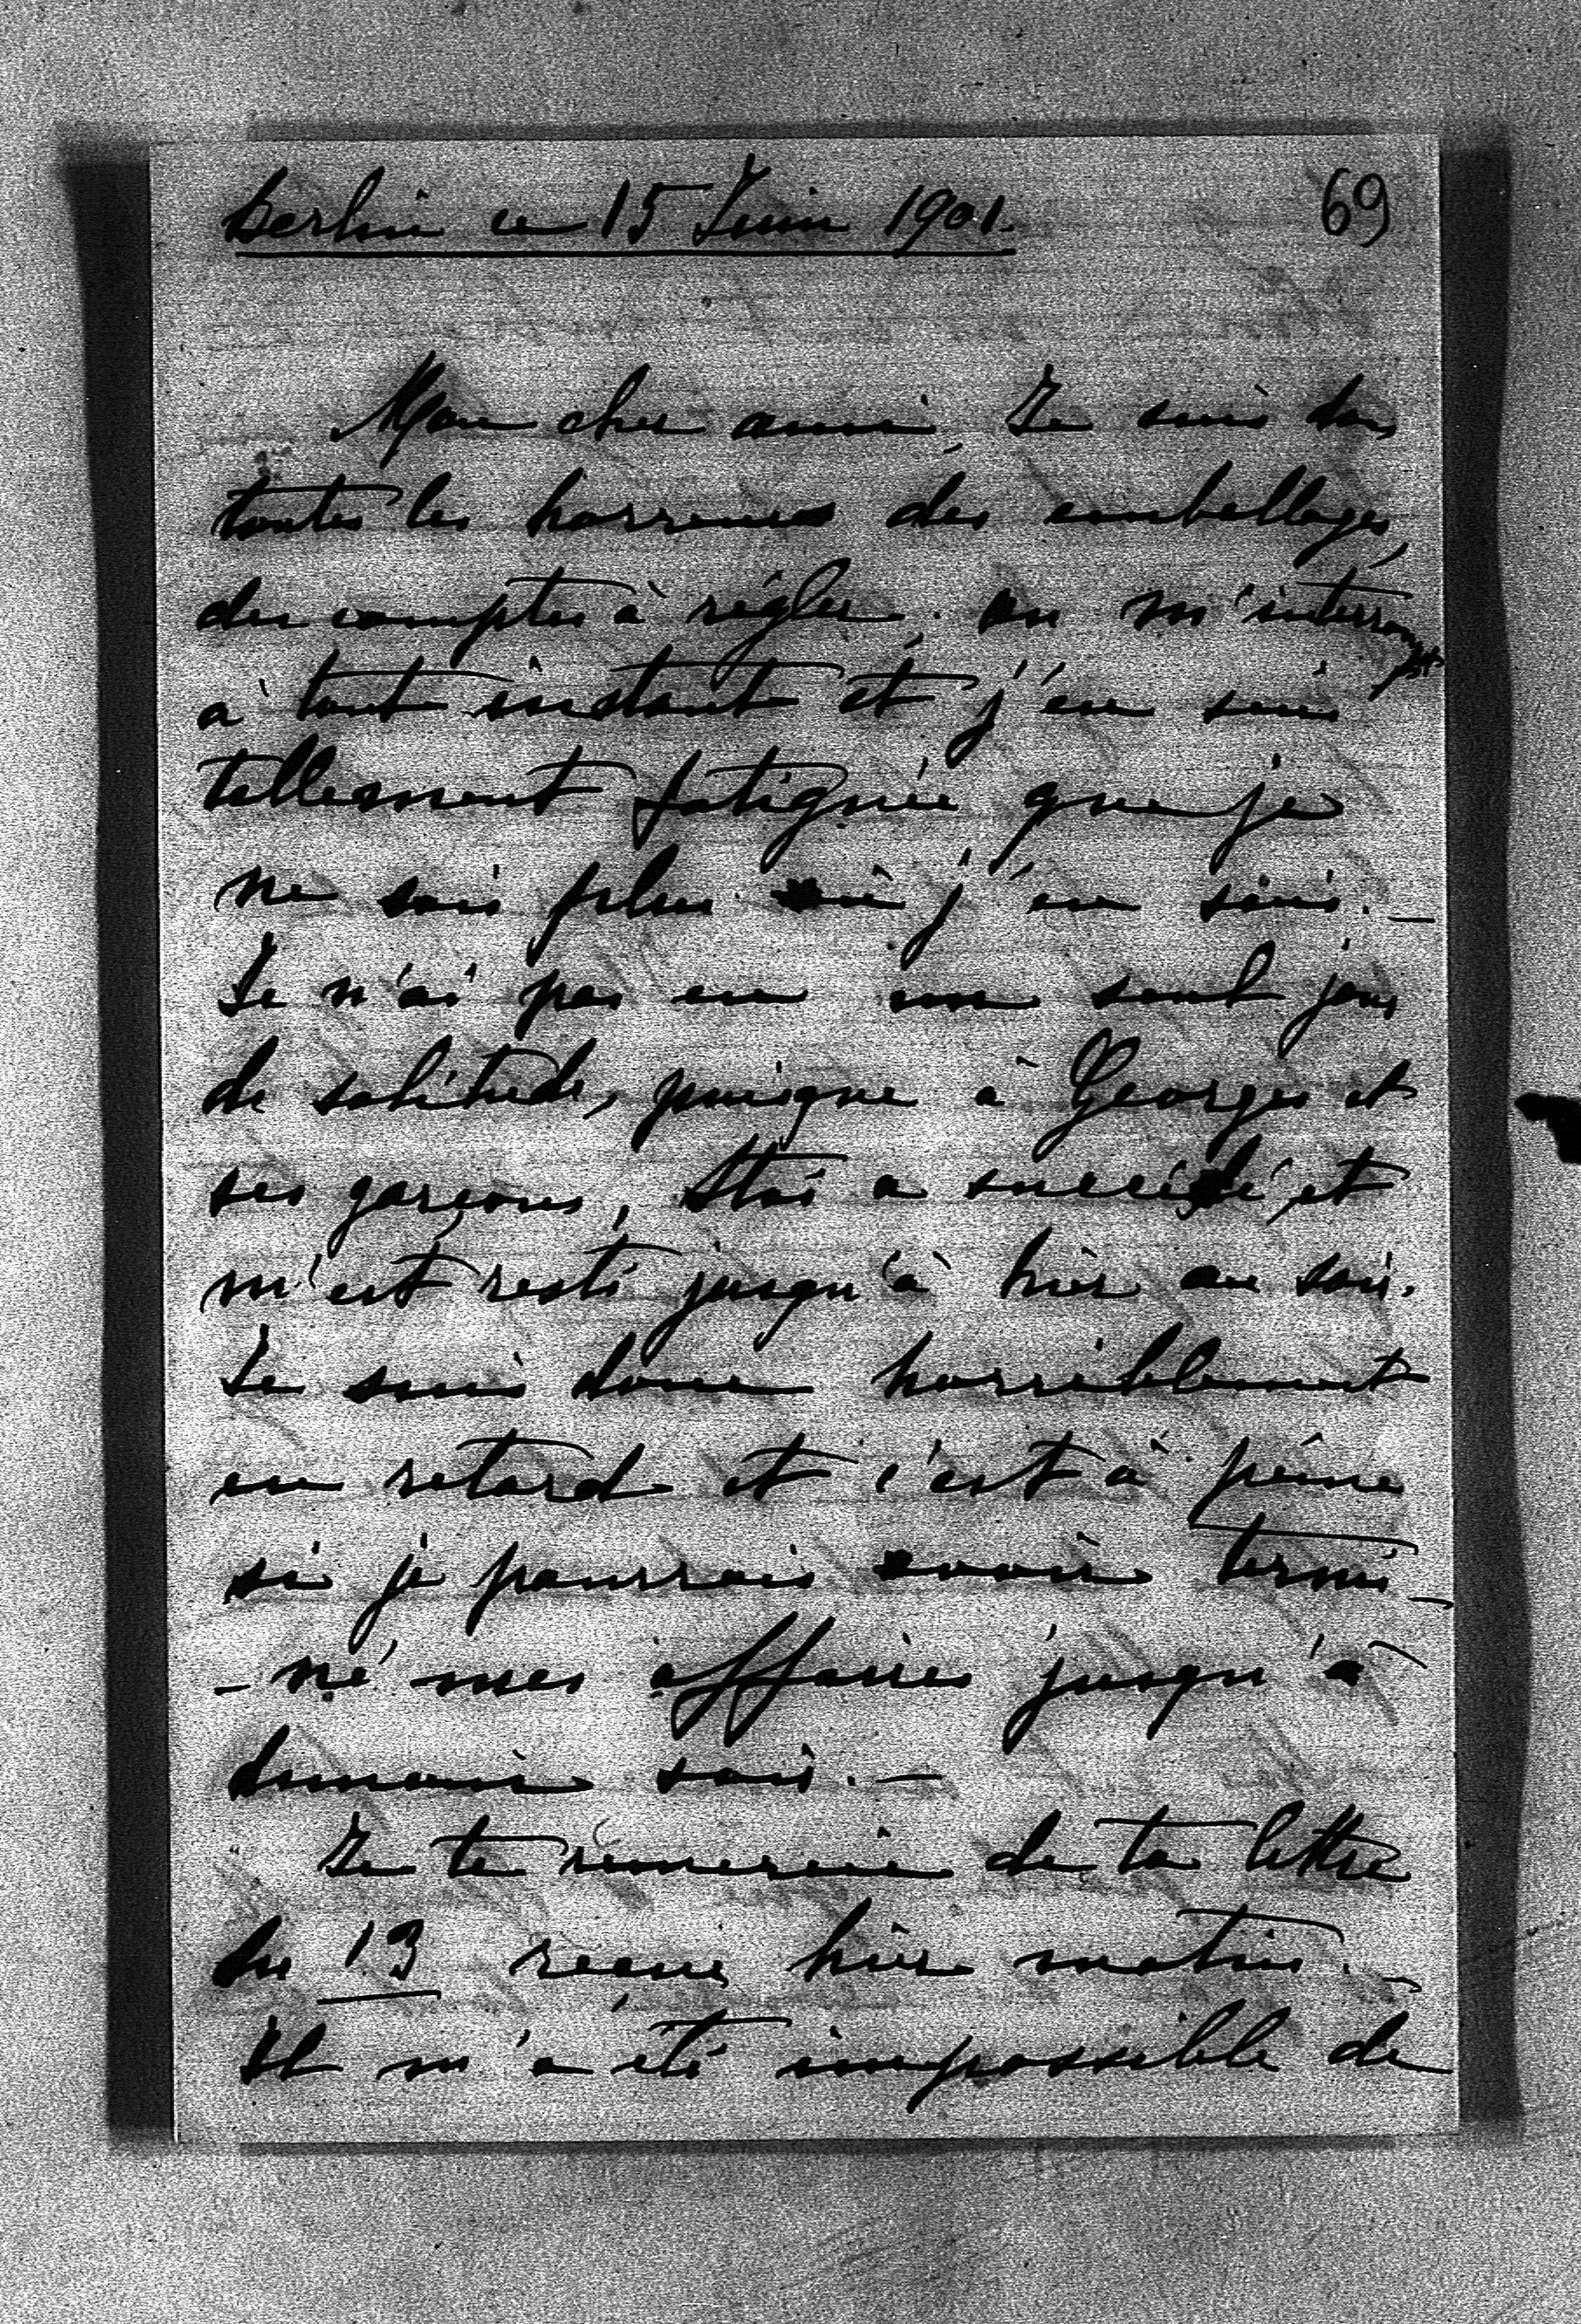 Berlin ce 15 Juin 1901.
69
Mon cher ami, Je suis dans
toutes les horreurs des emballages,
des comptes à régler, on m'interrompt
à tout instant et j'en suis
tellement fatiguée que je
ne sais plus où j'en suis. —
Je n'ai pas eu un seul jour
de solitude, puisque à Georges et
ses garçons, a succédé et
m'est resté jusqu'à hier au soir.
Je suis donc horriblement
en retard et c'est à peine
si je pourrais avoir termi-
-né mes affaires jusqu'à
demain soir. —
Je te remercie de ta lettre
du 13 reçue hier matin. —
Il m'a été impossible de